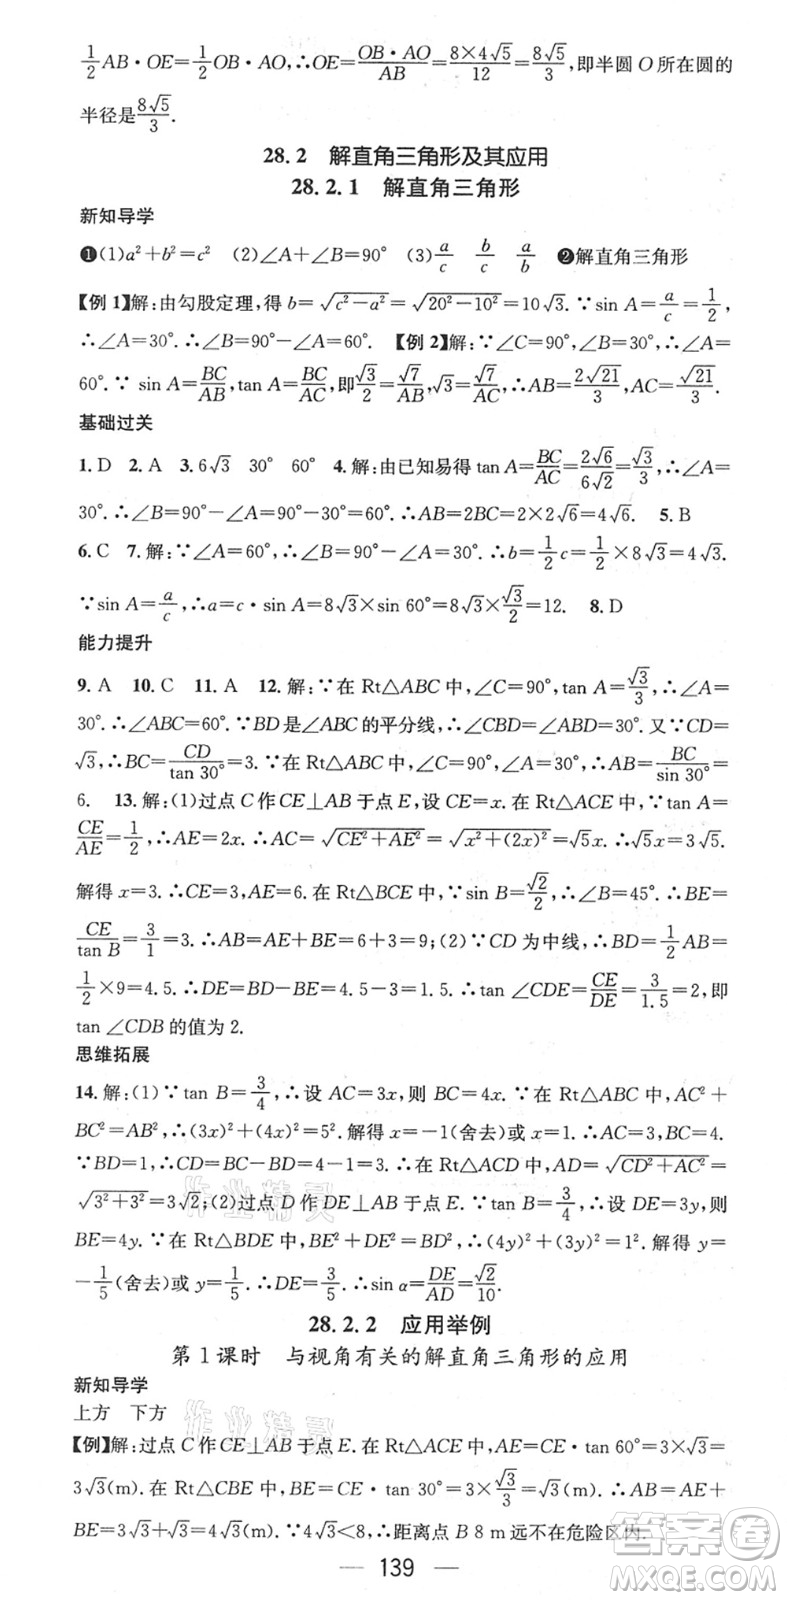 1/2 AB·OE=1/2 OB·AO,∴OE=OB·AO/AB=8×4√5/12=8√5/3,即半圆 O 所在圆的
半径是8√5/3.
28.2 解直角三角形及其应用
28.2.1 解直角三角形
新知导学
❶(1)a²+b²=c² (2)∠A+∠B=90° (3)a/c b/c a/b ❷解直角三角形
【例1】解:由勾股定理,得 b=√(c²-a²)=√(20²-10²)=10√3.∵sin A=a/c=1/2,
∴∠A=30°.∴∠B=90°-∠A=60°. 【例2】解:∵∠C=90°,∠B=30°,∴∠A=
60°.∵ sin A=BC/AB,tan A=BC/AC,即√3/2=√7/AB,√3=√7/AC.∴AB=2√21/3,AC=√21/3.
基础过关
1. D 2. A 3. 6√3 30° 60° 4. 解:由已知易得 tan A=BC/AC=2√6/6√2=√3/3,∴∠A=
30°.∴∠B=90°-∠A=90°-30°=60°.∴AB=2BC=2×2√6=4√6. 5. B
6. C 7. 解:∵∠A=60°,∴∠B=90°-∠A=30°.∴b=1/2 c=1/2×8√3=4√3.
∵sin A=a/c,∴a=c·sin A=8√3×sin 60°=8√3×√3/2=12. 8. D
能力提升
9. A 10. C 11. A 12. 解:∵在 Rt△ABC 中,∠C=90°,tan A=√3/3,∴∠A=
30°.∴∠ABC=60°.∵BD是∠ABC 的平分线,∴∠CBD=∠ABD=30°.又∵CD=
√3,∴BC=CD/tan 30°=3.∵在 Rt△ABC 中,∠C=90°,∠A=30°,∴AB=BC/sin 30°=
6. 13. 解:(1)过点 C 作 CE⊥AB 于点 E,设 CE=x.在 Rt△ACE 中,∵tan A=
CE/AE=1/2,∴AE=2x.∴AC=√(CE²+AE²)=√(x²+(2x)²)=√5x.∴√5x=3√5.
解得 x=3.∴CE=3,AE=6.在 Rt△BCE 中,∵sin B=√2/2,∴∠B=45°.∴BE=
CE/tan B=3/1=3.∴AB=AE+BE=6+3=9;(2)∵CD 为中线,∴BD=1/2 AB=
1/2×9=4.5.∴DE=BD-BE=4.5-3=1.5.∴tan ∠CDE=CE/DE=3/1.5=2,即
tan ∠CDB 的值为 2.
思维拓展
14. 解:(1)∵tan B=3/4,∴设 AC=3x,则 BC=4x.∵在 Rt△ABC 中,AC²+
BC²=AB²,∴(3x)²+(4x)²=5².解得 x=-1(舍去)或 x=1.∴AC=3,BC=4.
∵BD=1,∴CD=BC-BD=3.∴在 Rt△ACD 中,AD=√(CD²+AC²)=
√(3²+3²)=3√2;(2)过点 D 作 DE⊥AB 于点 E.∵tan B=3/4,∴设 DE=3y,则
BE=4y.∵在 Rt△BDE 中,BE²+DE²=BD²,∴(4y)²+(3y)²=1².解得 y=-
1/5(舍去)或 y=1/5.∴DE=3/5.∴sin α=DE/AD=√2/10.
28.2.2 应用举例
第1课时 与视角有关的解直角三角形的应用
新知导学
上方 下方
【例】解:过点 C 作 CE⊥AB 于点 E.在 Rt△ACE 中,AE=CE·tan 60°=3×√3=
3√3(m).在 Rt△CBE 中,BE=CE·tan 30°=3×√3/3=√3(m).∴AB=AE+
BE=3√3+√3=4√3(m).∵4√3<8,∴距离点 B 8 m 远不在危险区内.
139
作业精灵
作业精灵
答案圈
MXQE.COM